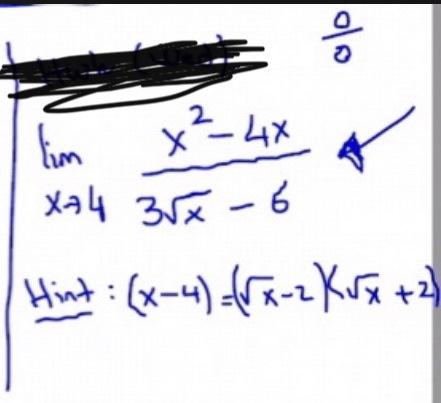 0/0
lim x→4 (x² - 4x)/(3√x - 6)
Hint : (x-4) = (√x-2)(√x+2)